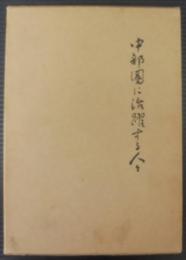 中部圏に活躍する人々